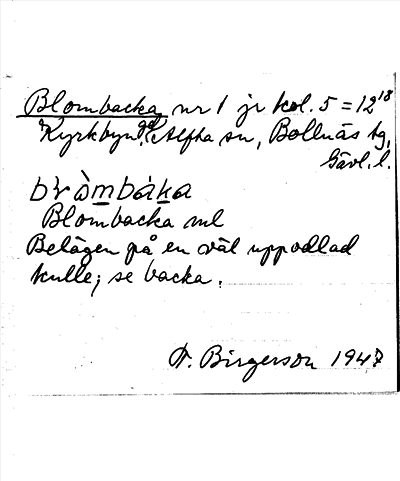 Blombacka nr 1 jr kol. 5 = 12 18
Kyrkbyn, Alfta sn, Bollnäs tg,
Gävl. l.
bròmbàka
Blombacka ml
Belägen på en väl uppodlad
kulle; se backa.
F. Birgerson 1947